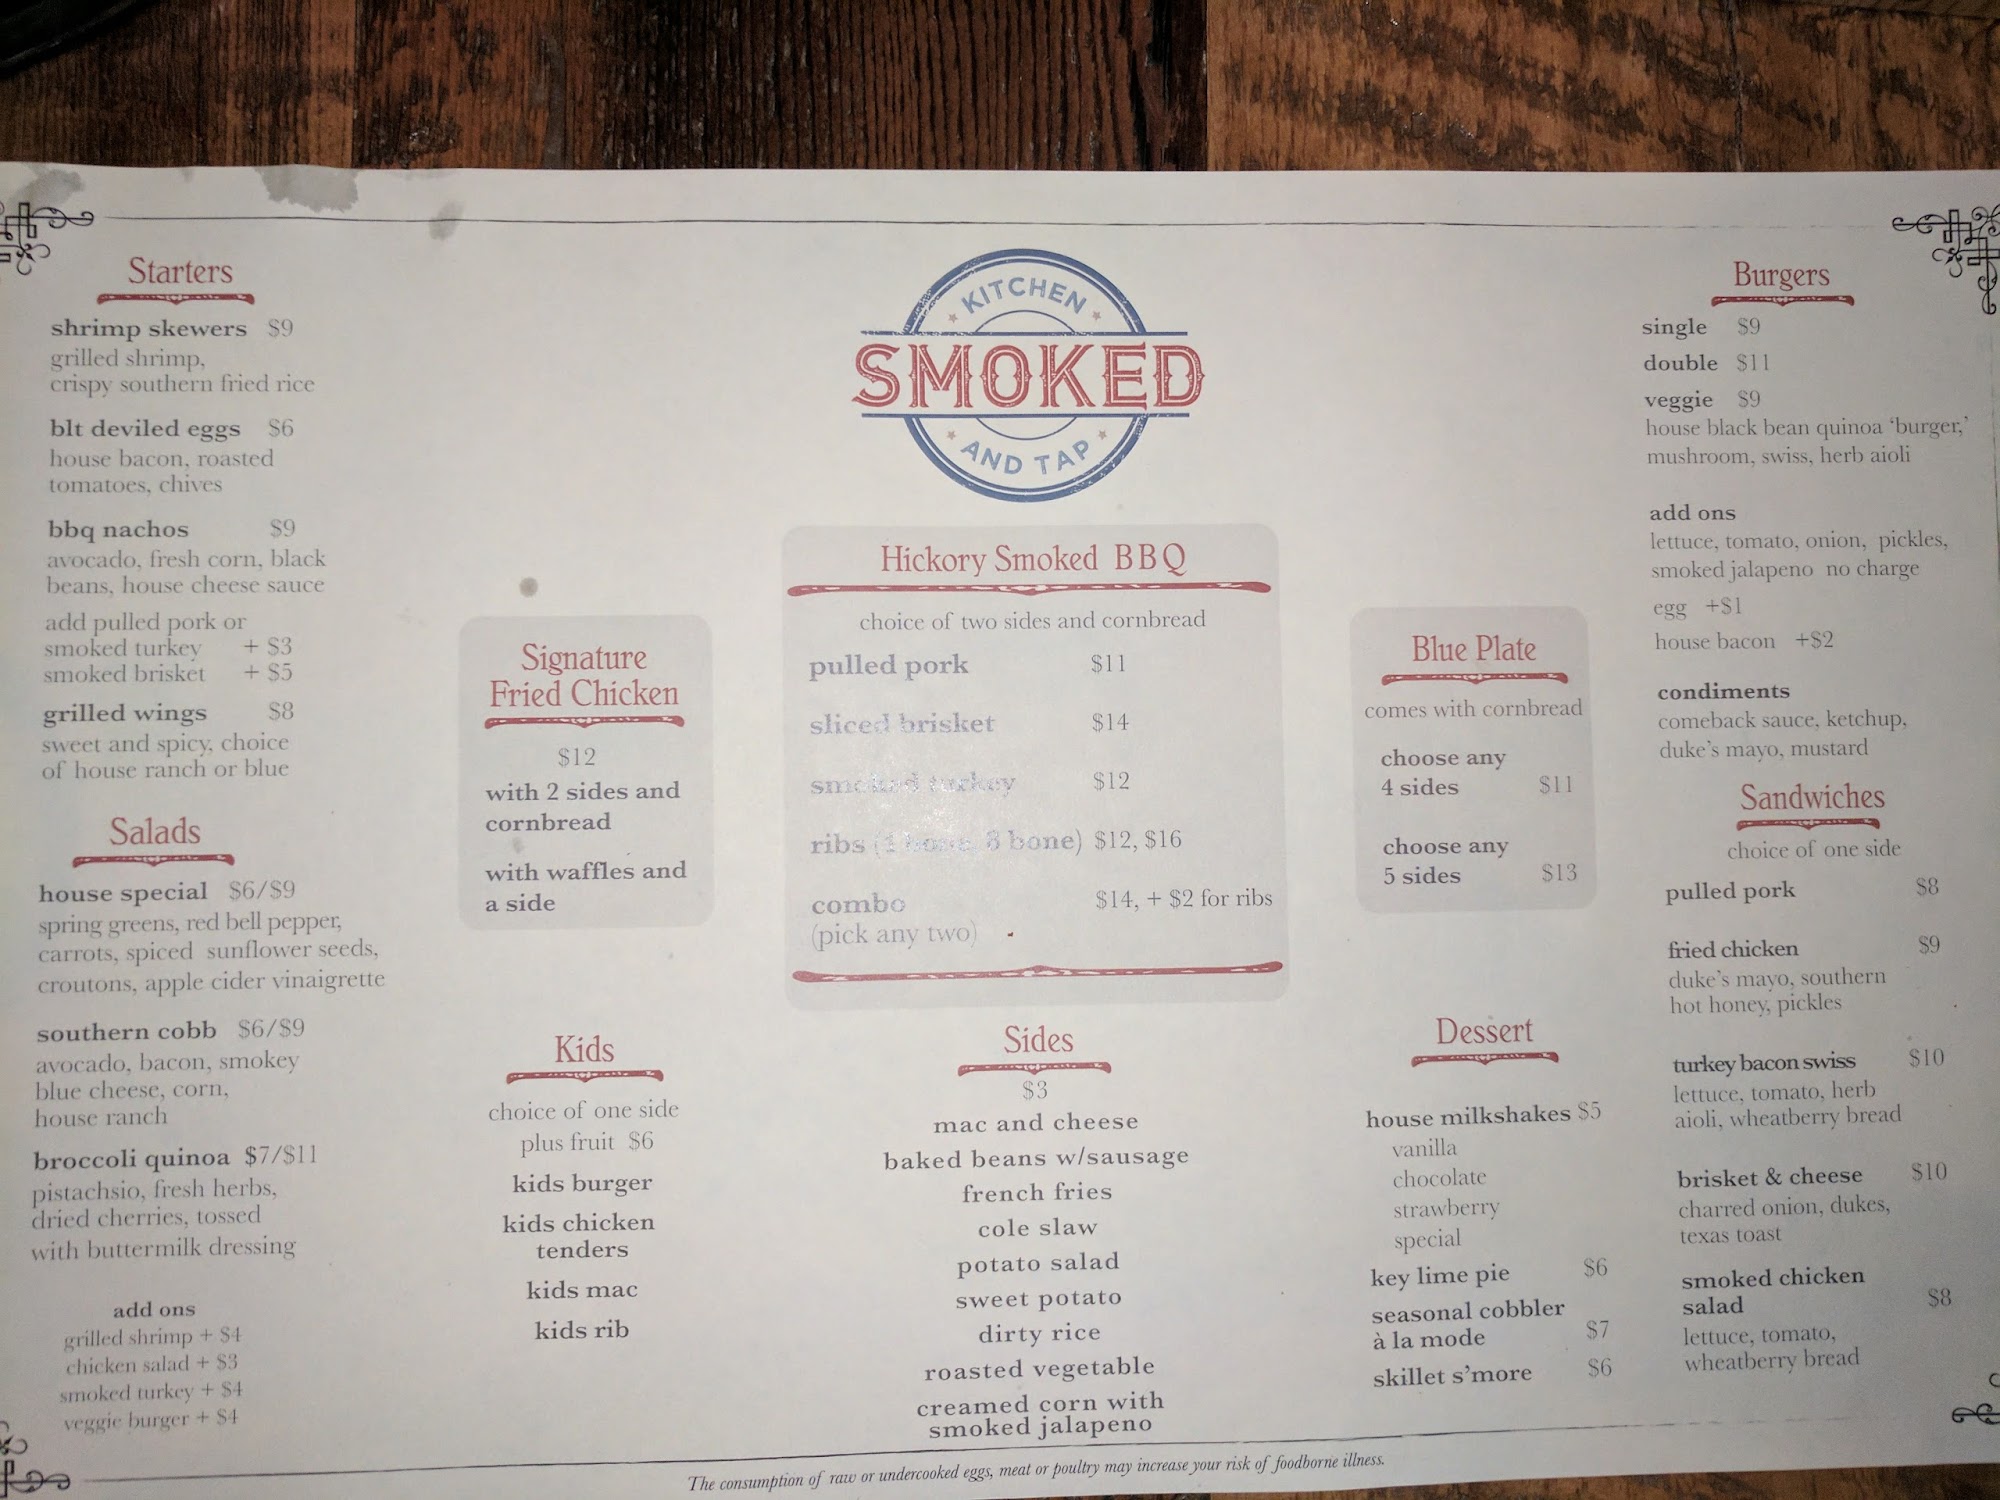 Starters
shrimp skewers $9
grilled shrimp,
crispy southern fried rice
blt deviled eggs $6
house bacon, roasted
tomatoes, chives
bbq nachos $9
avocado, fresh corn, black
beans, house cheese sauce
add pulled pork or
smoked turkey + $3
smoked brisket + $5
grilled wings $8
sweet and spicy, choice
of house ranch or blue
Salads
house special $6/$9
spring greens, red bell pepper,
carrots, spiced sunflower seeds,
croutons, apple cider vinaigrette
southern cobb $6/$9
avocado, bacon, smokey
blue cheese, corn,
house ranch
broccoli quinoa $7/$11
pistachsio, fresh herbs,
dried cherries, tossed
with buttermilk dressing
add ons
grilled shrimp + $4
chicken salad + $3
smoked turkey + $4
veggie burger + $4
Signature
Fried Chicken
$12
with 2 sides and
cornbread
with waffles and
a side
Kids
choice of one side
plus fruit $6
kids burger
kids chicken
tenders
kids mac
kids rib
KITCHEN
SMOKED
AND TAP
Hickory Smoked BBQ
choice of two sides and cornbread
pulled pork $11
sliced brisket $14
smoked turkey $12
ribs ( 8 bone) $12, $16
combo $14, + $2 for ribs
(pick any two)
Sides
$3
mac and cheese
baked beans w/sausage
french fries
cole slaw
potato salad
sweet potato
dirty rice
roasted vegetable
creamed corn with
smoked jalapeno
Blue Plate
comes with cornbread
choose any
4 sides $11
choose any
5 sides $13
Dessert
house milkshakes $5
vanilla
chocolate
strawberry
special
key lime pie $6
seasonal cobbler
à la mode $7
skillet s'more $6
Burgers
single $9
double $11
veggie $9
house black bean quinoa 'burger,'
mushroom, swiss, herb aioli
add ons
lettuce, tomato, onion, pickles,
smoked jalapeno no charge
egg +$1
house bacon +$2
condiments
comeback sauce, ketchup,
duke's mayo, mustard
Sandwiches
choice of one side
pulled pork $8
fried chicken $9
duke's mayo, southern
hot honey, pickles
turkey bacon swiss $10
lettuce, tomato, herb
aioli, wheatberry bread
brisket & cheese $10
charred onion, dukes,
texas toast
smoked chicken
salad $8
lettuce, tomato,
wheatberry bread
The consumption of raw or undercooked eggs, meat or poultry may increase your risk of foodborne illness.